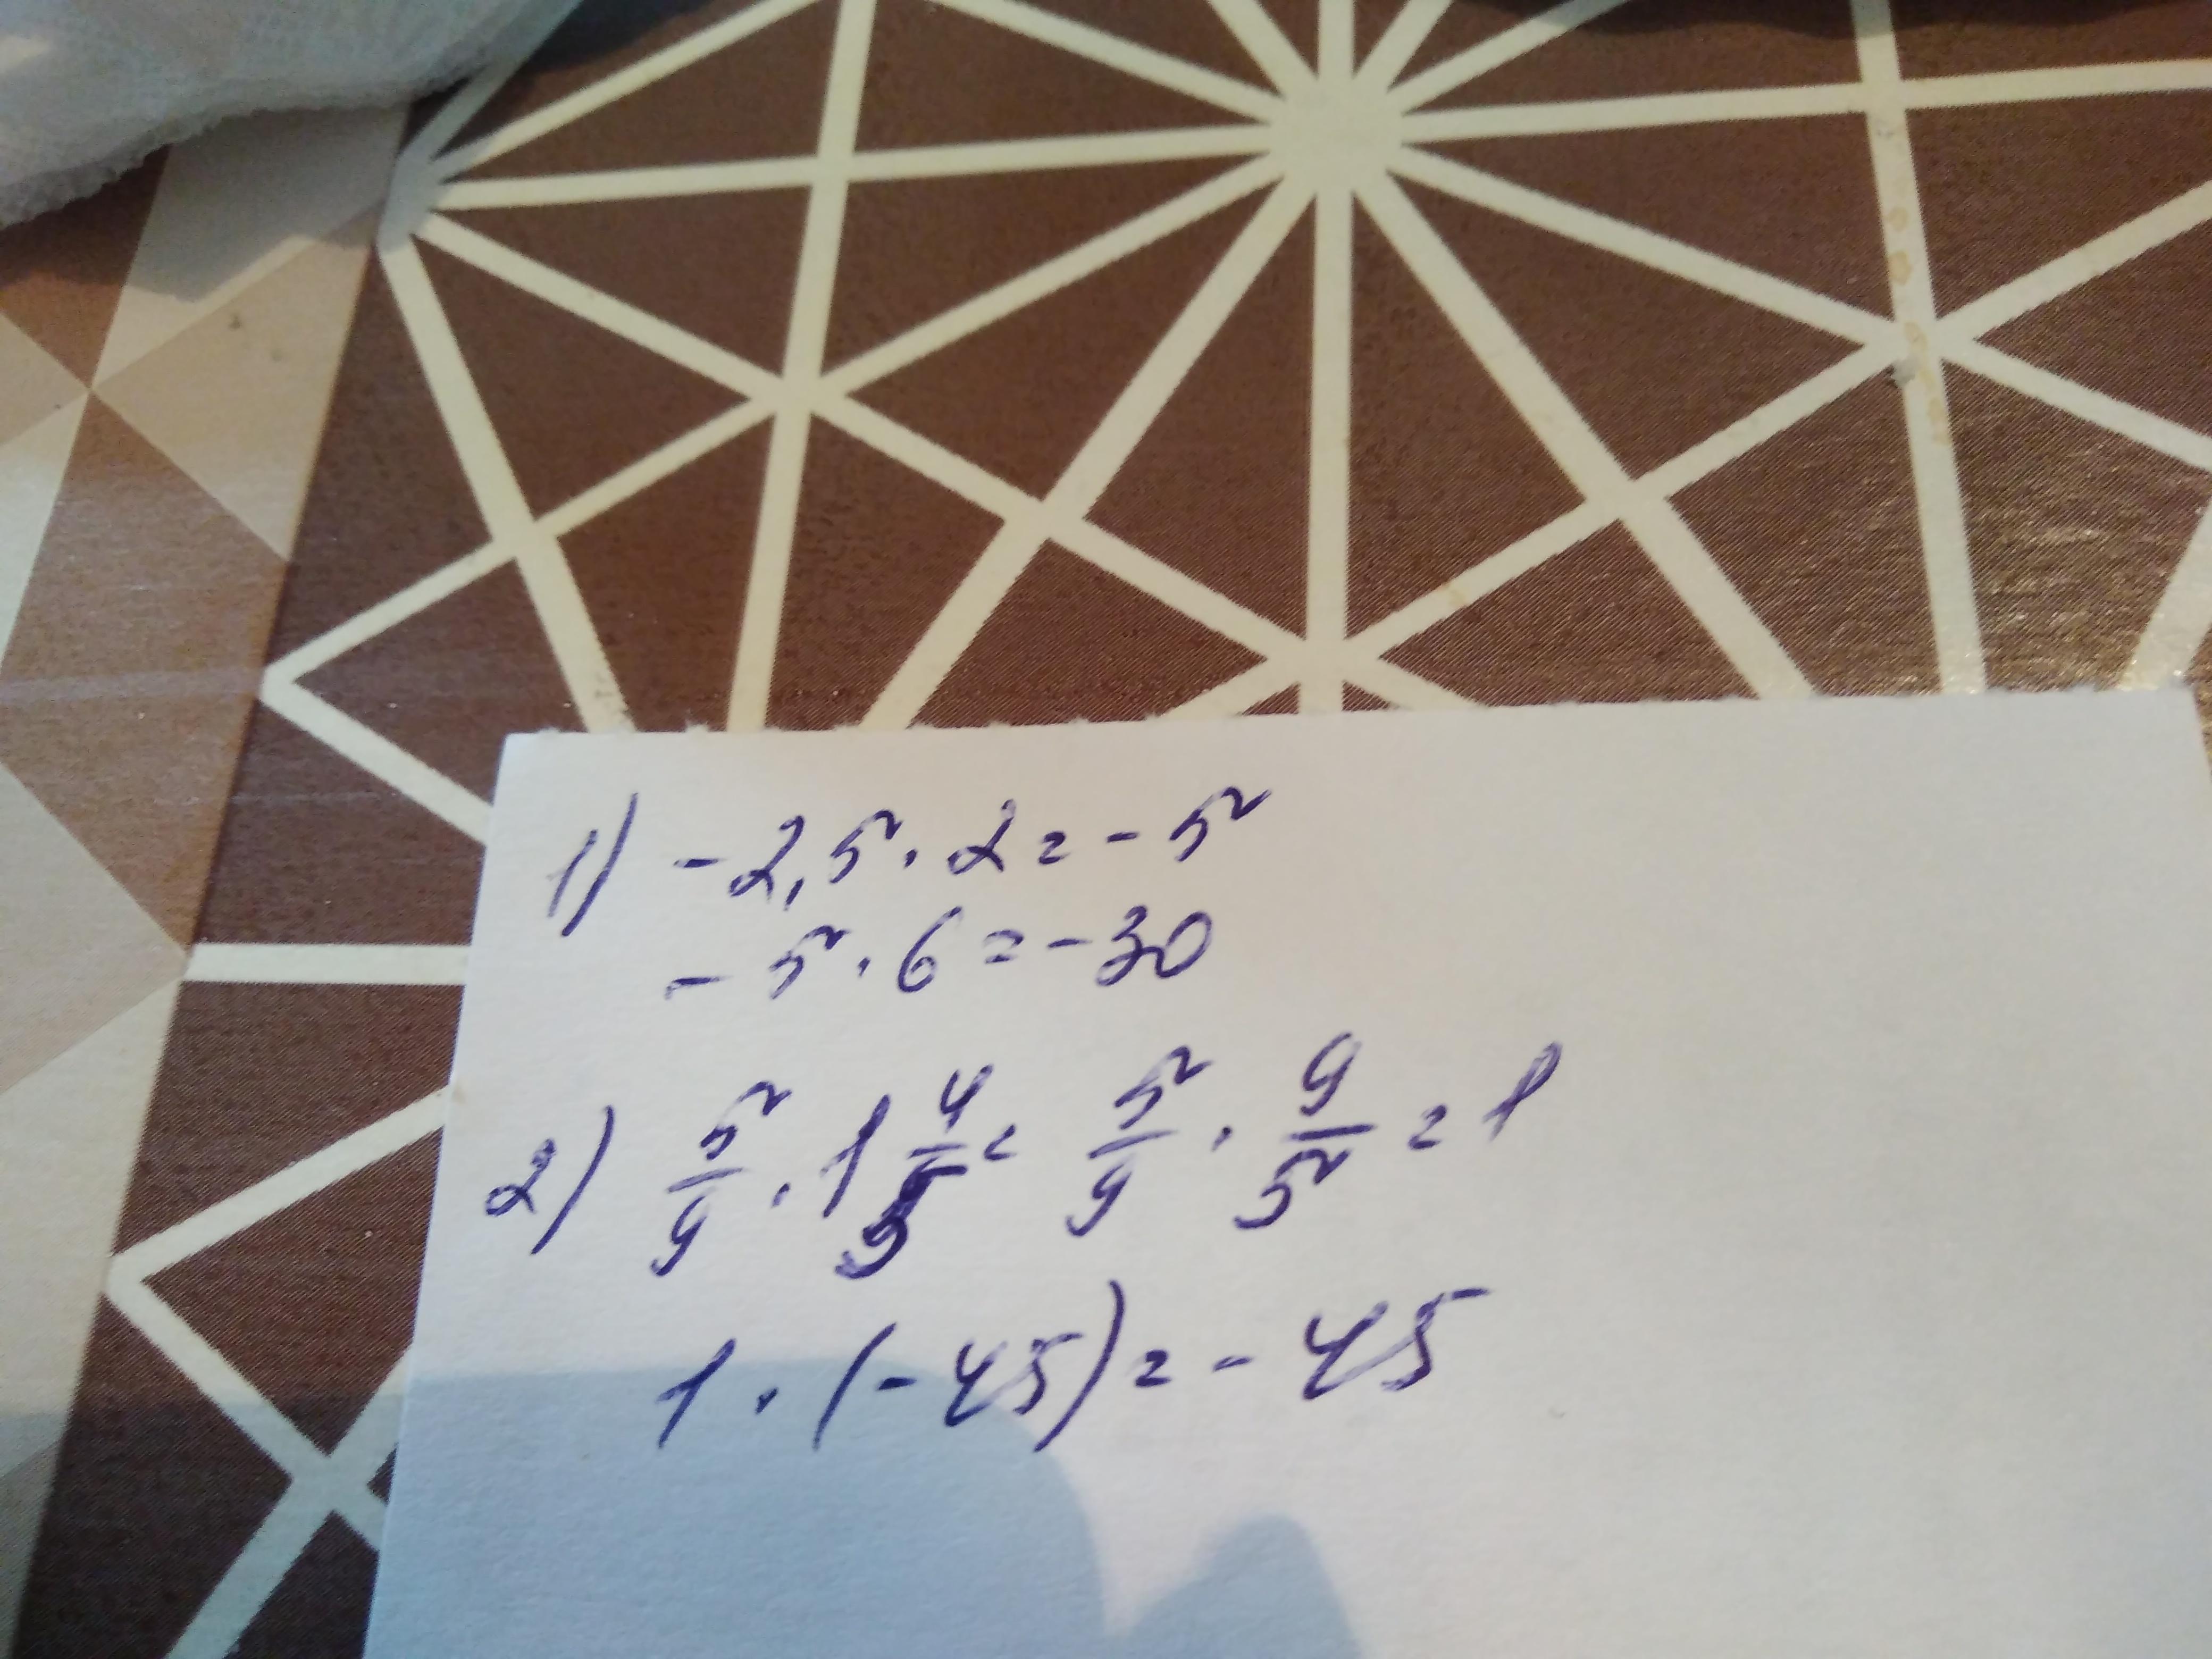 1) -2,5 · 2 = -5
-5 · 6 = -30
2) 5/9 · 1 4/5 = 5/9 · 9/5 = 1
1 · (-45) = -45